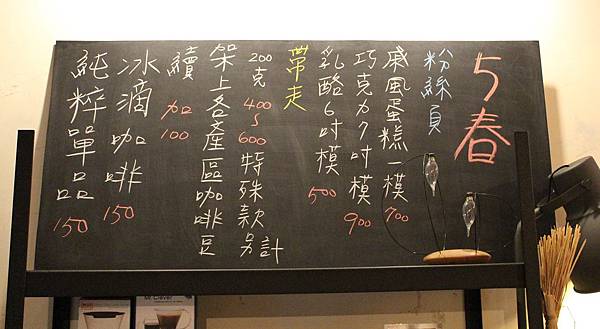 5春
粉絲頁
戚風蛋糕一模700
巧克力7吋模900
乳酪6吋模500
帶走
200克400~600特殊款另計
架上各產區咖啡豆
續加100
冰滴咖啡150
純粹單品150
Mr. Clever